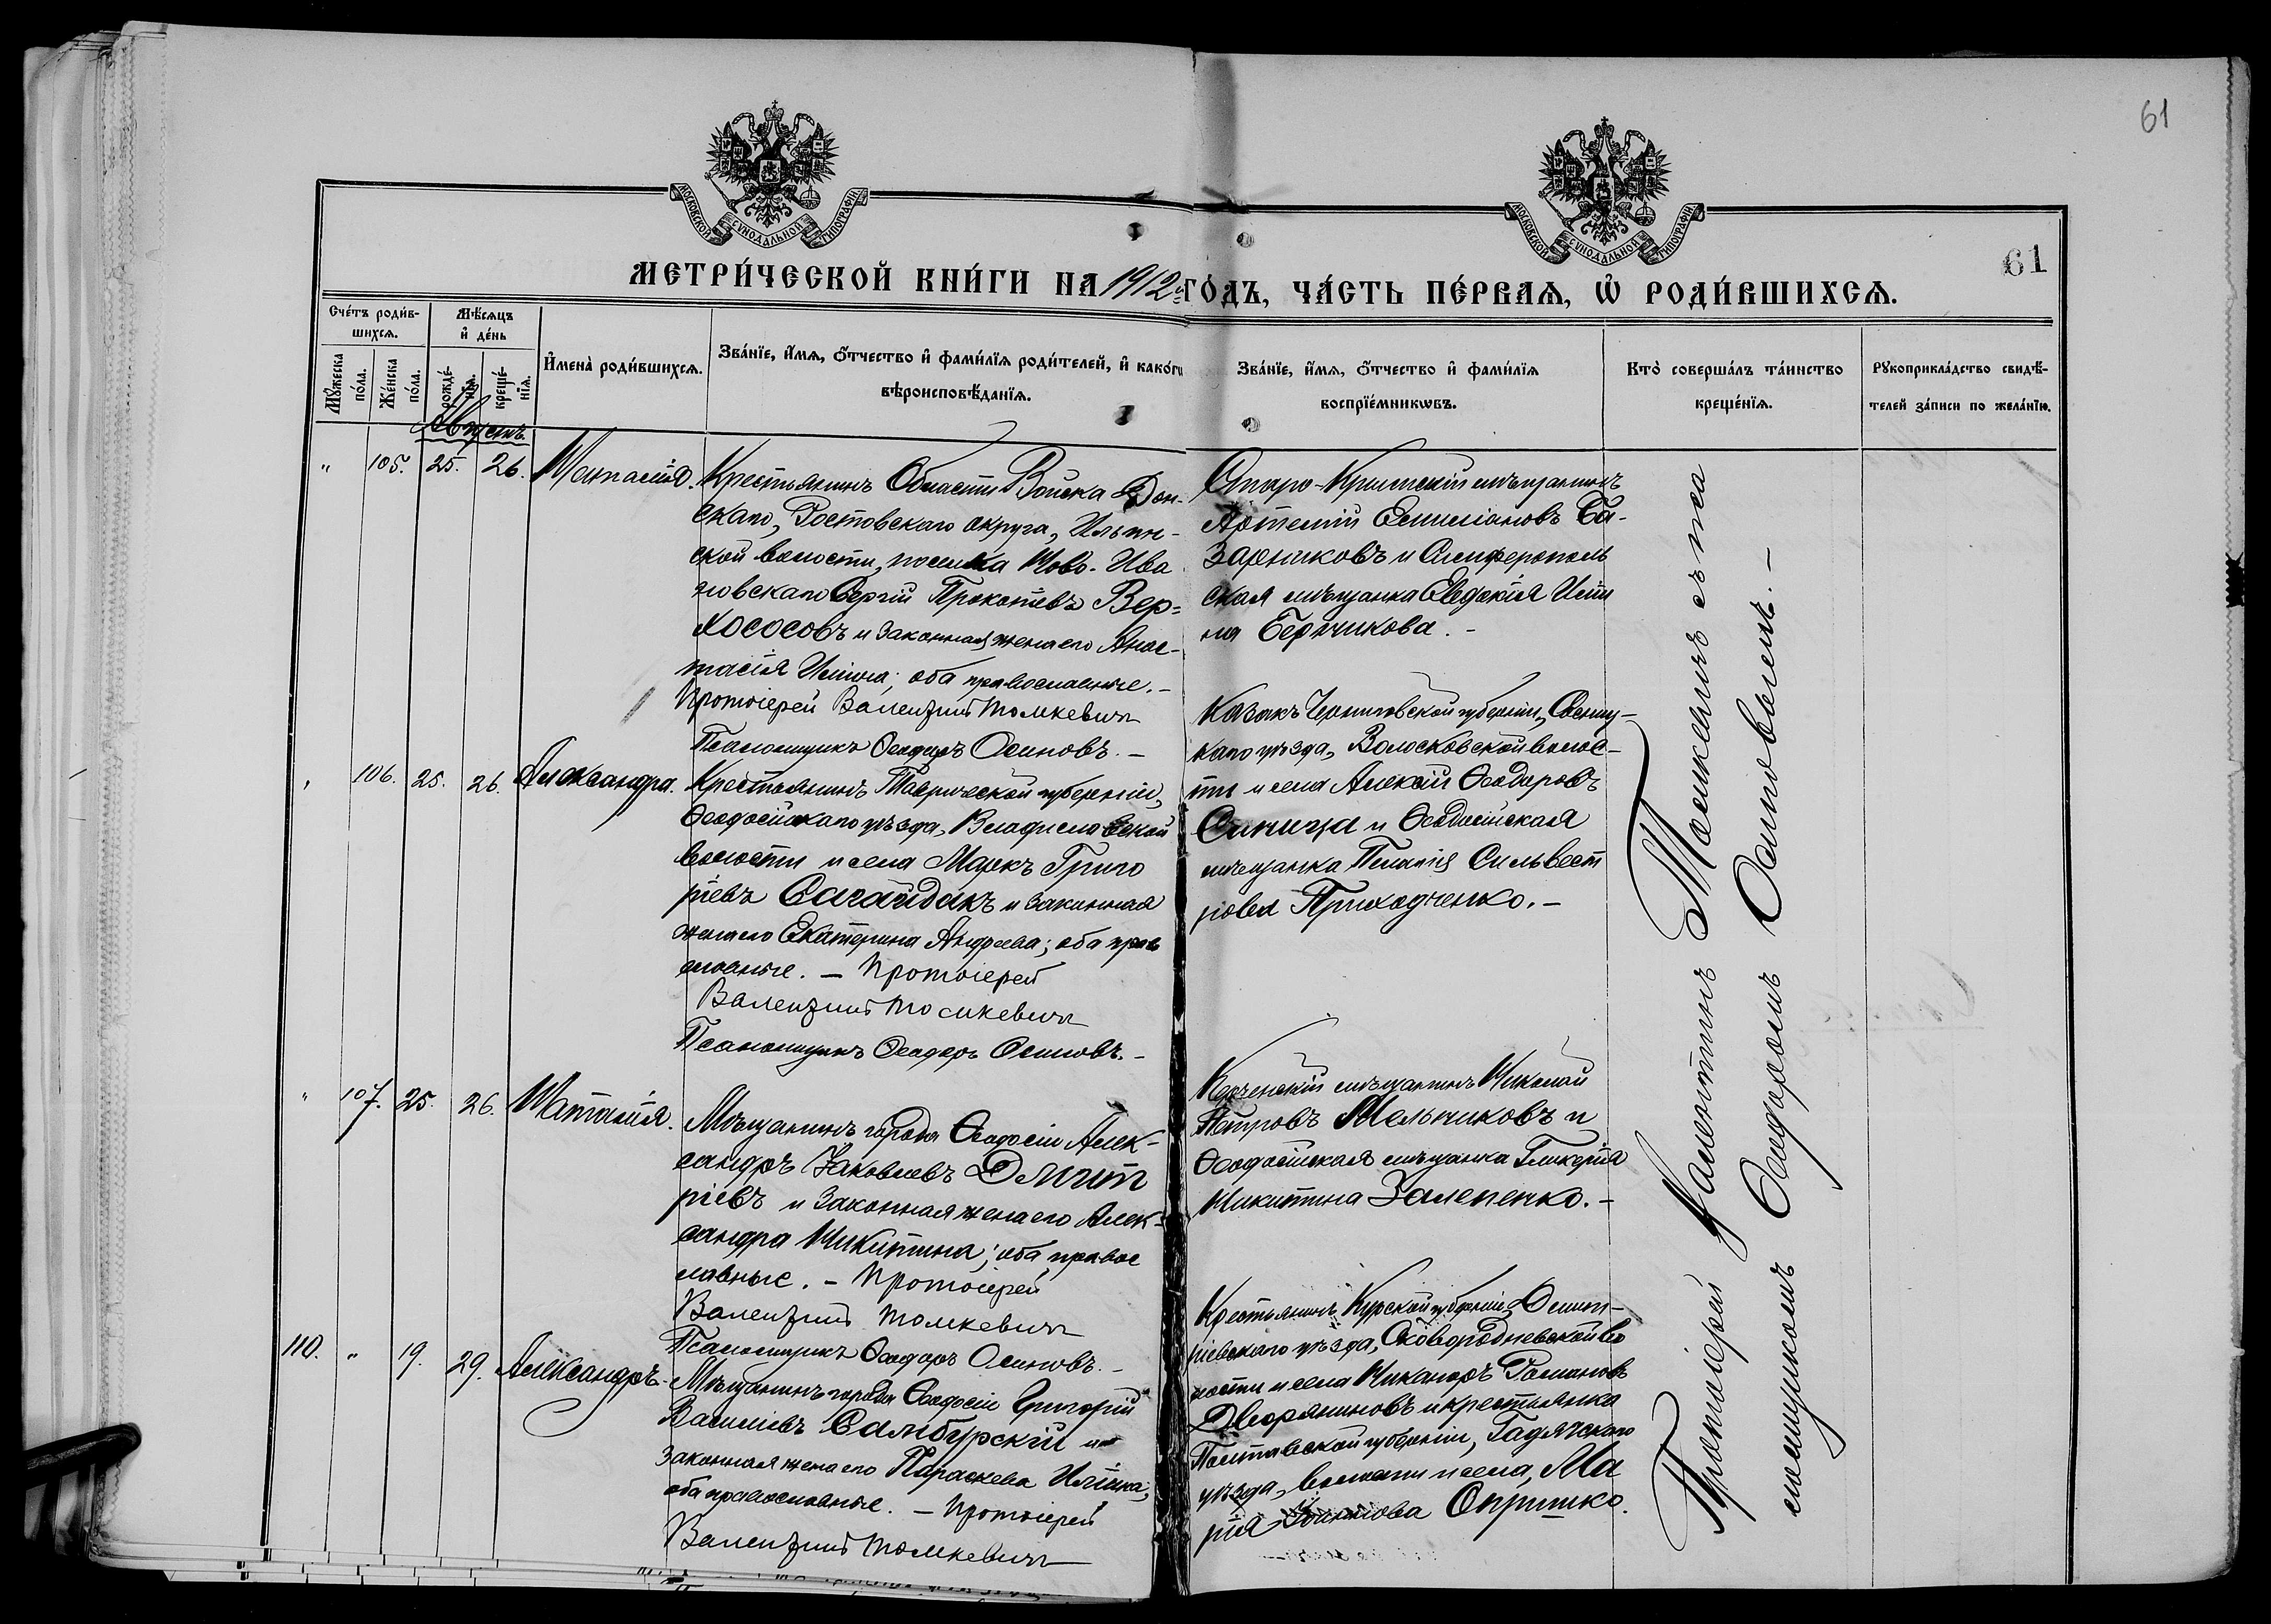 61
МОСКОВСКОЙ СѴНОДАЛЬНОЙ ТИПОГРАФІИ
МОСКОВСКОЙ СѴНОДАЛЬНОЙ ТИПОГРАФІИ
61
МЕТРИ́ЧЕСКОЙ КНИ́ГИ НА 1912 ГО́ДЪ, ЧА́СТЬ ПЕ́РВАѦ, Ѡ҆ РОДИ́ВШИХСѦ.
Сче́тъ роди́в-
шихсѧ.
Мѣ́сѧцъ
и҆ де́нь
Мꙋ́жеска
по́ла.
Же́нска
по́ла.
рожде́-
нїѧ.
креще́-
нїѧ.
И҆мена̀ роди́вшихсѧ.
Зва́нїе, и҆́мѧ, ѻ҆́тчество и҆ фами́лїѧ роди́телей, и҆ како́гѡ
вѣроисповѣ́данїѧ.
Зва́нїе, и҆́мѧ, ѻ҆́тчество и҆ фами́лїѧ
воспрїе́мникѡвъ.
Кто̀ соверша́лъ та́инство
креще́нїѧ.
Рꙋкоприкла́дство свидѣ́-
телей за́писи по жела́нїю.
Августъ.
" 105. 25. 26. Наталія.
Крестьянинъ Области Войска Дон-
скаго, Ростовскаго округа, Ильин-
ской волости, поселка Ново-Ива
новскаго Сергій Прокопіевъ Вер-
хососовъ и законная жена его Анас-
тасія Ильина; оба православные.-
Протоіерей Валентинъ Томкевичъ
Псаломщикъ Ѳеодоръ Осиповъ.-
Старо-Крымскій мѣщанинъ
Артемій Емиліановъ Ба-
зарниковъ и Симферополь
ская мѣщанка Евдокія Ильи
на Берчикова.-
" 106. 25. 26. Александра.
Крестьянинъ Таврической губерніи,
Ѳеодосійскаго уѣзда, Владиславской
волости и села Маркъ Григо
ріевъ Сагайдакъ и законная
жена его Екатерина Андреева; оба прав
славные. - Протоіерей
Валентинъ Томкевичъ
Псаломщикъ Ѳеодоръ Осиповъ.-
Казакъ Черниговской губерніи, Сосниц-
каго уѣзда, Волосковской волос-
ти и села Алексій Ѳеодоровъ
Синица и Ѳеодосійская
мѣщанка Пелагія Сильвест
рова Приходченко.-
" 107. 25. 26. Наталія.
Мѣщанинъ города Ѳеодосіи Алек-
сандръ Іаковлевъ Дмит
ріевъ и законная жена его Алек-
сандра Никитина; оба правос
лавные. - Протоіерей
Валентинъ Томкевичъ
Псаломщикъ Ѳеодоръ Осиповъ.-
Керченскій мѣщанинъ Николай
Петровъ Мельниковъ и
Ѳеодосійская мѣщанка Гликерія
Никитина Залепенко.-
110. " 19. 29. Александръ.
Мѣщанинъ города Ѳеодосіи Григорій
Василіевъ Самбурскій и
законная жена его Параскева Ильина;
оба православные. - Протоіерей
Валентинъ Томкевичъ
Крестьянинъ Курской губерніи, Дмит-
ріевскаго уѣзда, Сковородневской во
лости и села Никаноръ Романовъ
Дворяниновъ и крестьянка
Полтавской губерніи, Гадячскаго
уѣзда, волости и села, Ма
рія Опришко.
Протоіерей Валентинъ Томкевичъ съ пса
ломщикомъ Ѳеодоромъ Осиповымъ.-